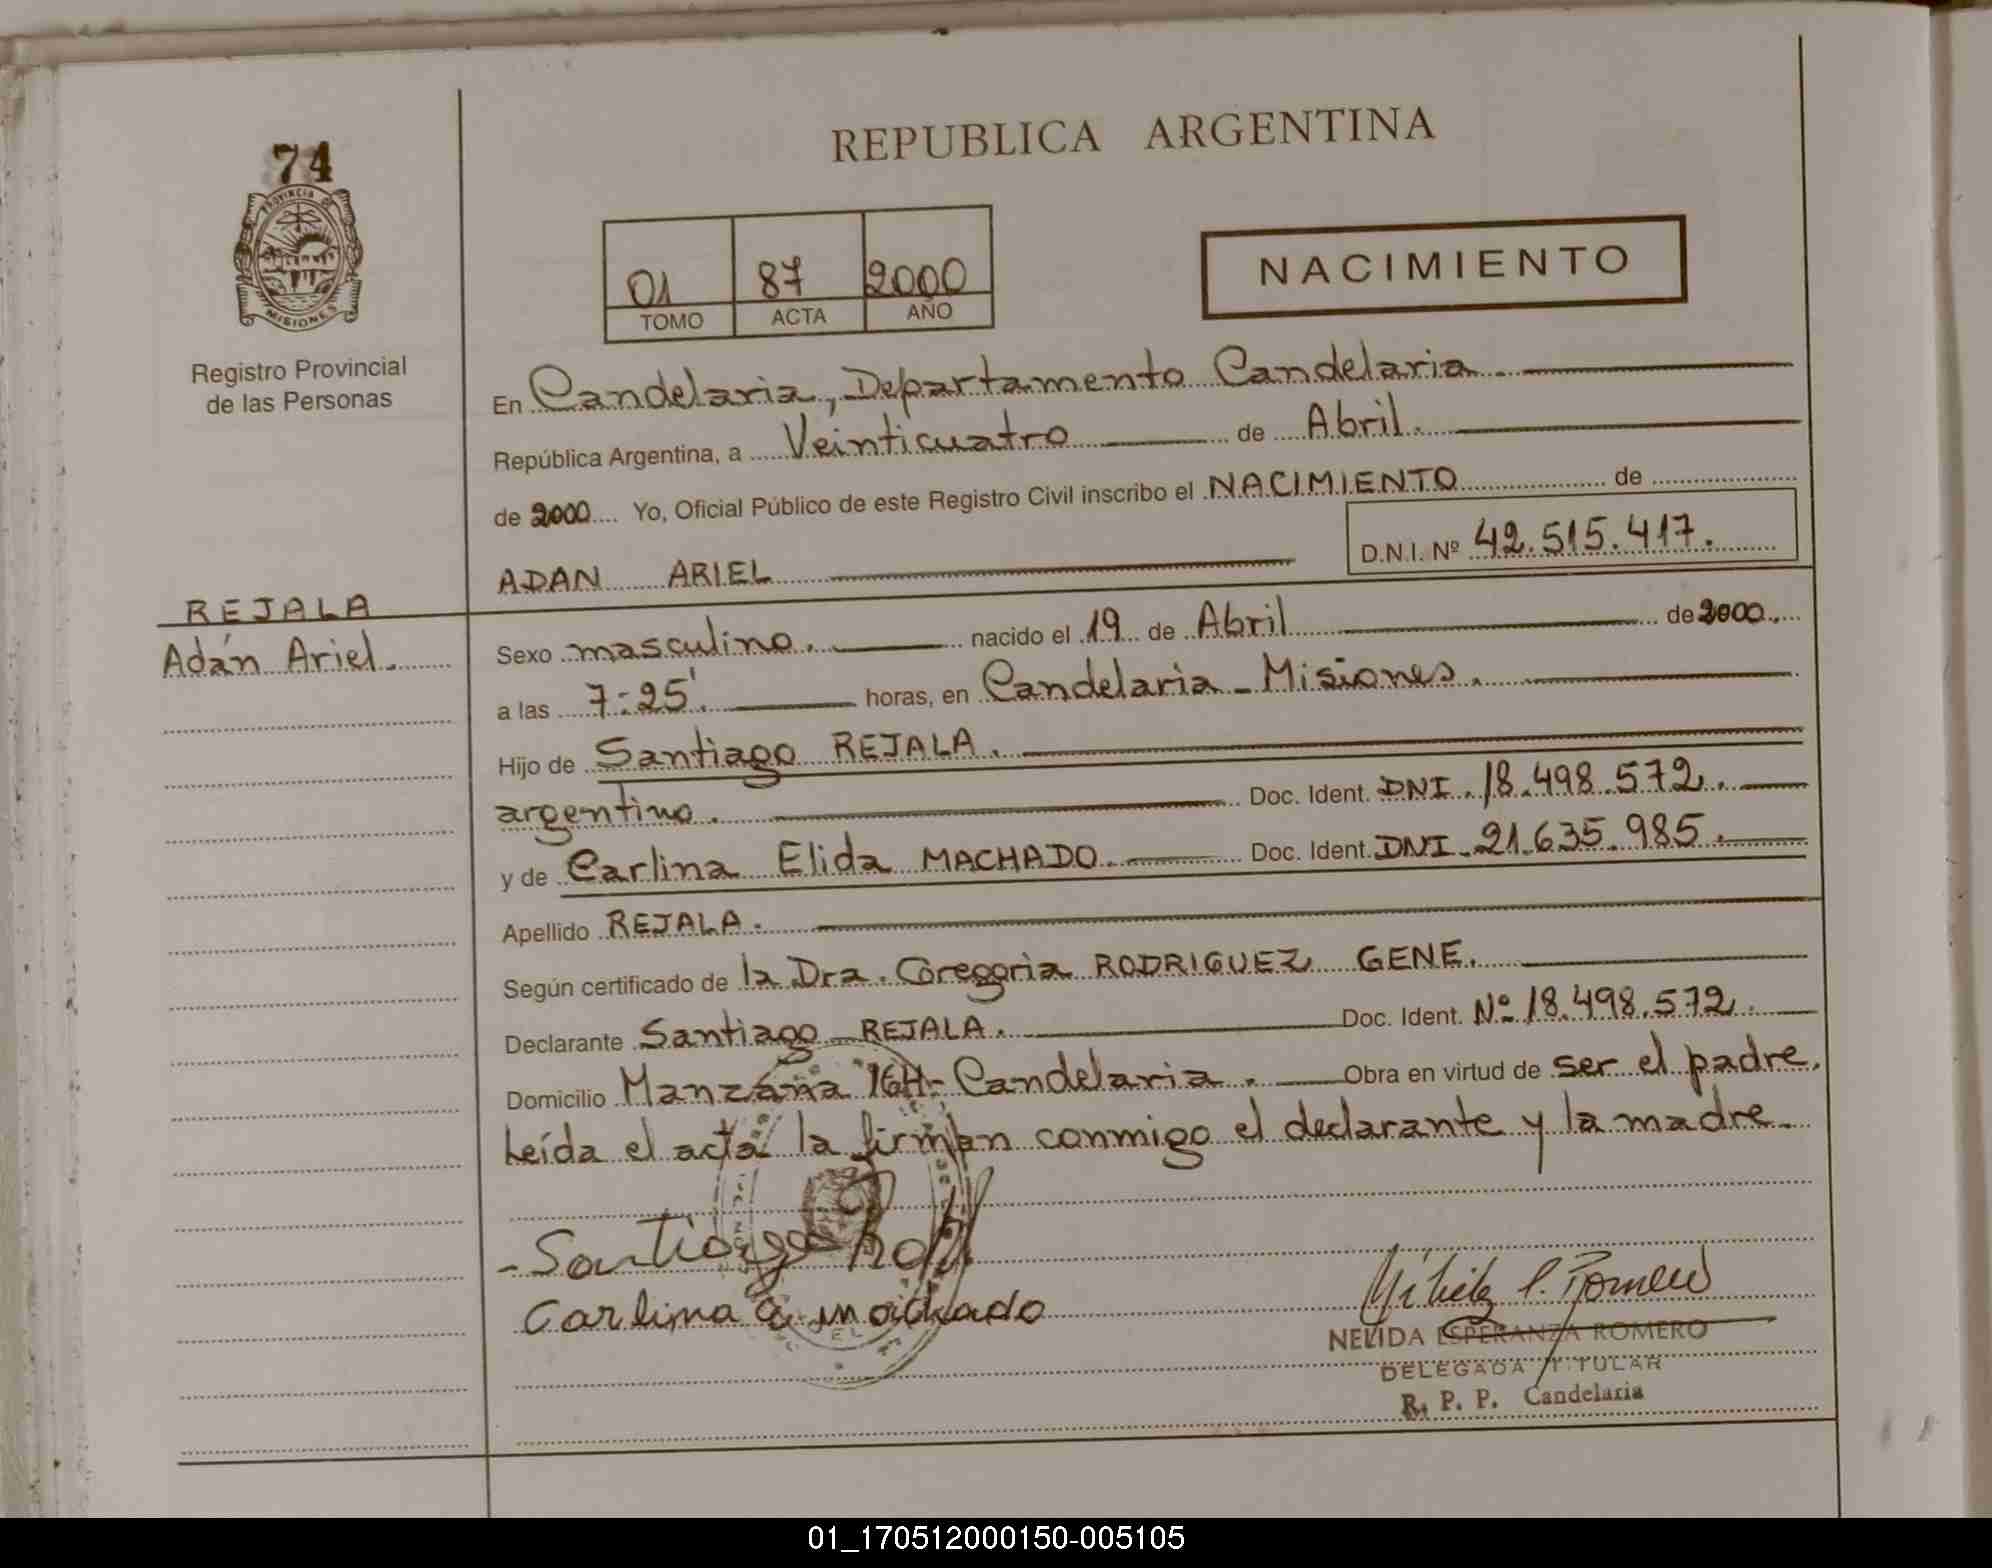 74
PROVINCIA DE
MISIONES
Registro Provincial
de las Personas
REJALA
Adán Ariel.
REPUBLICA ARGENTINA
01 87 2000
TOMO ACTA AÑO
NACIMIENTO
En Candelaria, Departamento Candelaria.
República Argentina, a Veinticuatro de Abril.
de 2000 Yo, Oficial Público de este Registro Civil inscribo el NACIMIENTO de
ADAN ARIEL D.N.I. Nº 42.515.417.
Sexo masculino. nacido el 19 de Abril de 2000.
a las 7:25'. horas, en Candelaria - Misiones.
Hijo de Santiago REJALA.
argentino. Doc. Ident. DNI. 18.498.572.
y de Carlina Elida MACHADO. Doc. Ident. DNI. 21.635.985.
Apellido REJALA.
Según certificado de la Dra. Goregoria RODRIGUEZ GENE.
Declarante Santiago REJALA. Doc. Ident. Nº 18.498.572.
Domicilio Manzana 16H- Candelaria. Obra en virtud de ser el padre.
Leída el acta la firman conmigo el declarante y la madre.
Santiago
Carlina E. machado
NELIDA ESPERANZA ROMERO
DELEGADA TITULAR
R. P. P. Candelaria
01_170512000150-005105